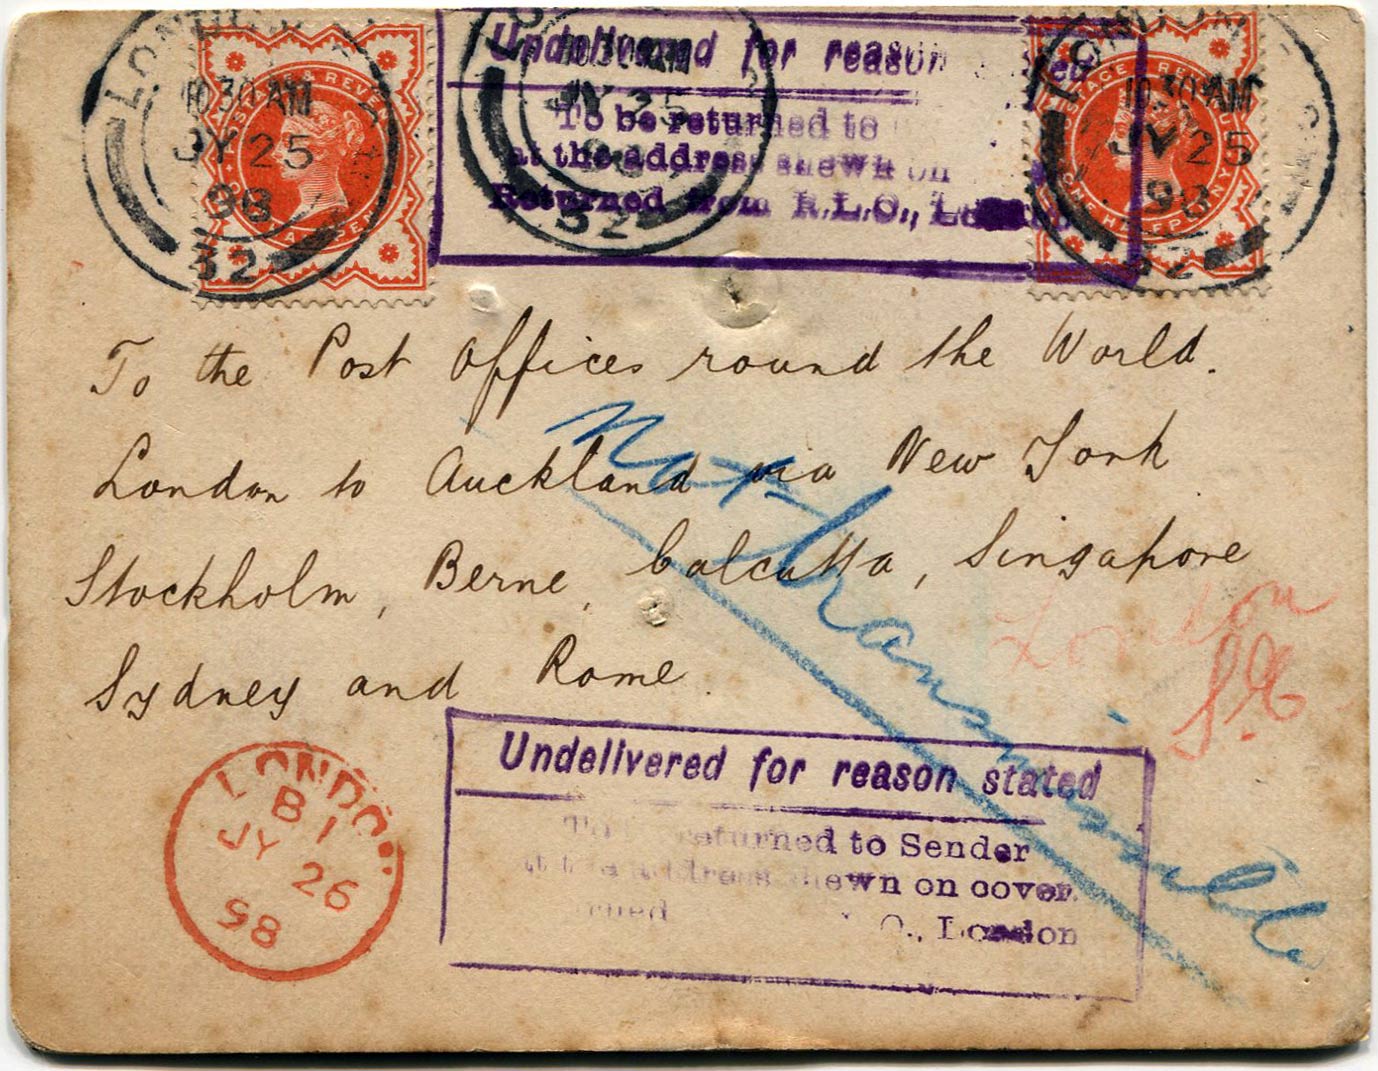 LONDON
10 30 AM
JY 25
98
32
10 30 AM
JY 25
98
32
LONDON
10 30 AM
JY 25
98
32
POSTAGE & REVENUE
ONE HALFPENNY
Undelivered for reason stated
To be returned to
at the address shewn on
Returned from R.L.O., London
To the Post Offices round the World.
London to Auckland via New York
Stockholm, Berne, Calcutta, Singapore
Sydney and Rome.
Not transmissible
London
S.E.
LONDON
B I
JY 26
98
Undelivered for reason stated
To be returned to Sender
at the address shewn on cover.
O., London